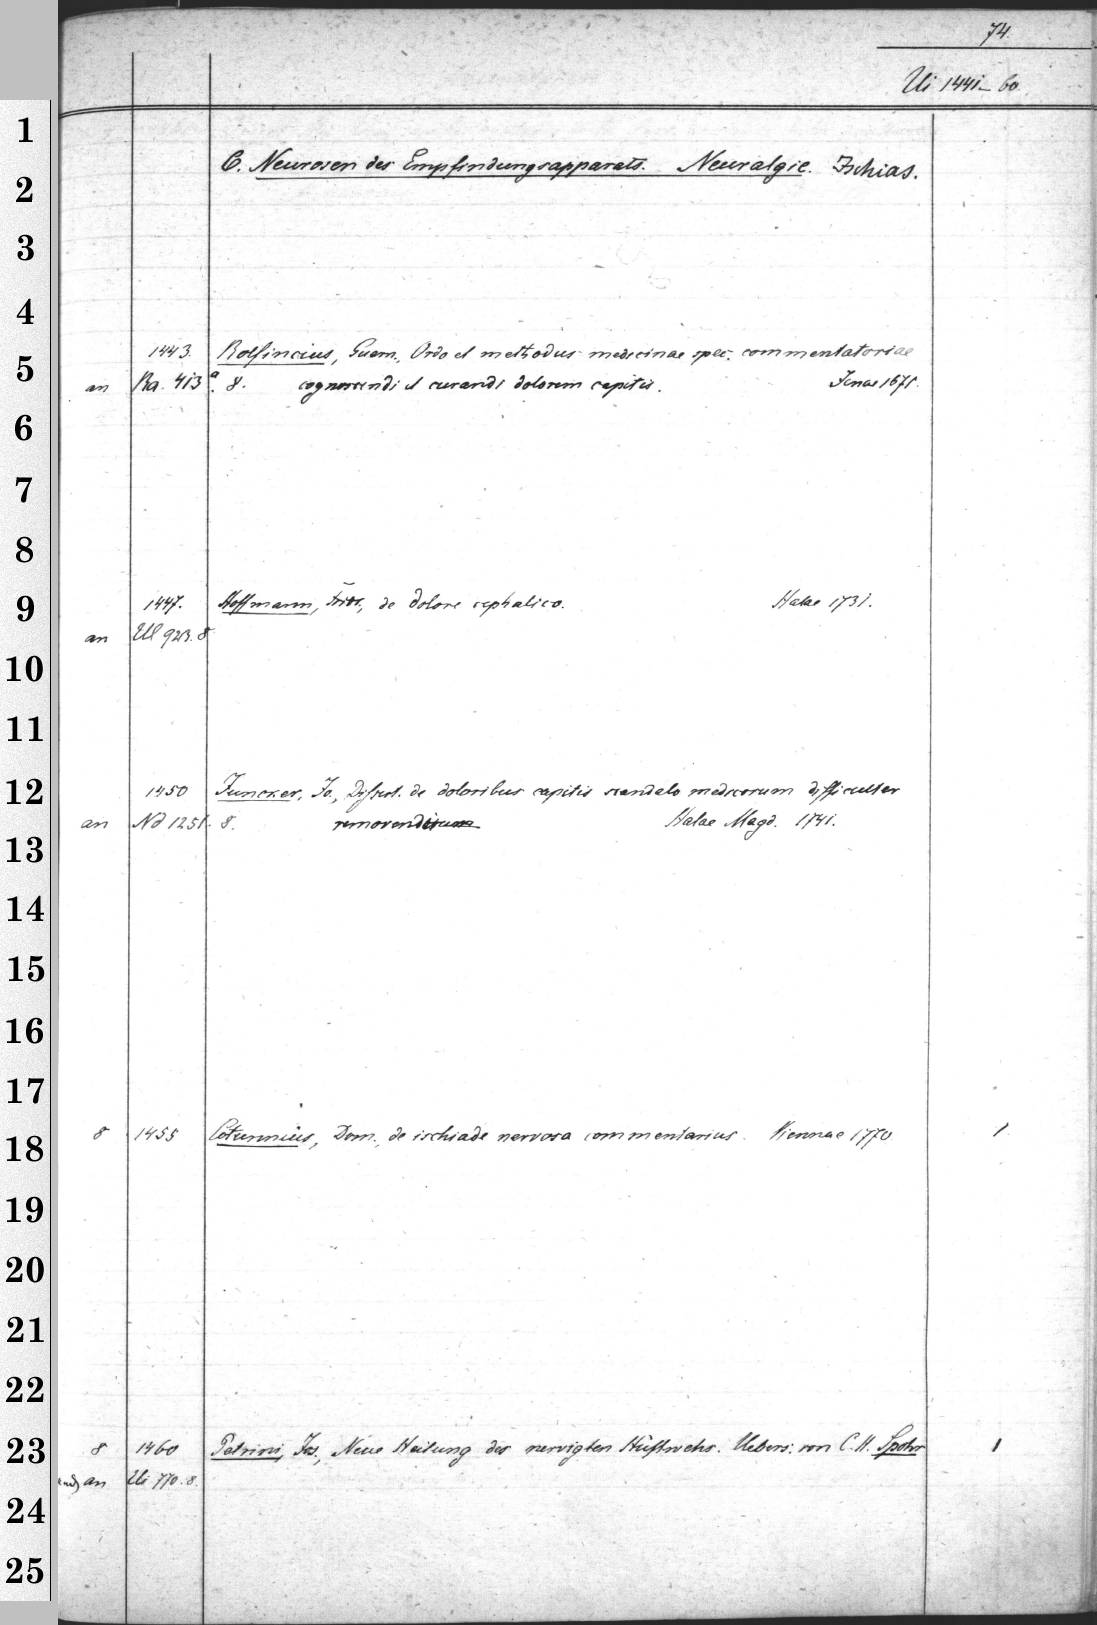 74.
Ui 1441–60
1
C. Neurosen des Empfindungsapparats. Neuralgie. Ischias.
2
3
4
1443. Rolfincius, Guern., Ordo et methodus medicinae spec. commentatoriae
5
an Ra. 413ª. 8. cognoscendi et curandi dolorem capitis. Jenae 1671.
6
7
8
1447. Hoffmann, Fridr., de dolore cephalico. Halae 1731.
9
an Ul 923. 8
10
11
1450 Juncker, Jo., Dissert. de doloribus capitis scandalo medicorum difficulter
12
an Nd 1251. 8. Halae Magd. 1741.
13
14
15
16
17
8 1455 Cotunnius, Dom., de ischiade nervosa commentarius. Viennae 1770 1
18
19
20
21
22
8 1460 Petrini, Jos., Neue Heilung des nervigten Hüftwehs. Uebers. von C. H. Spohr 1
23
an Ui 770. 8.
24
25